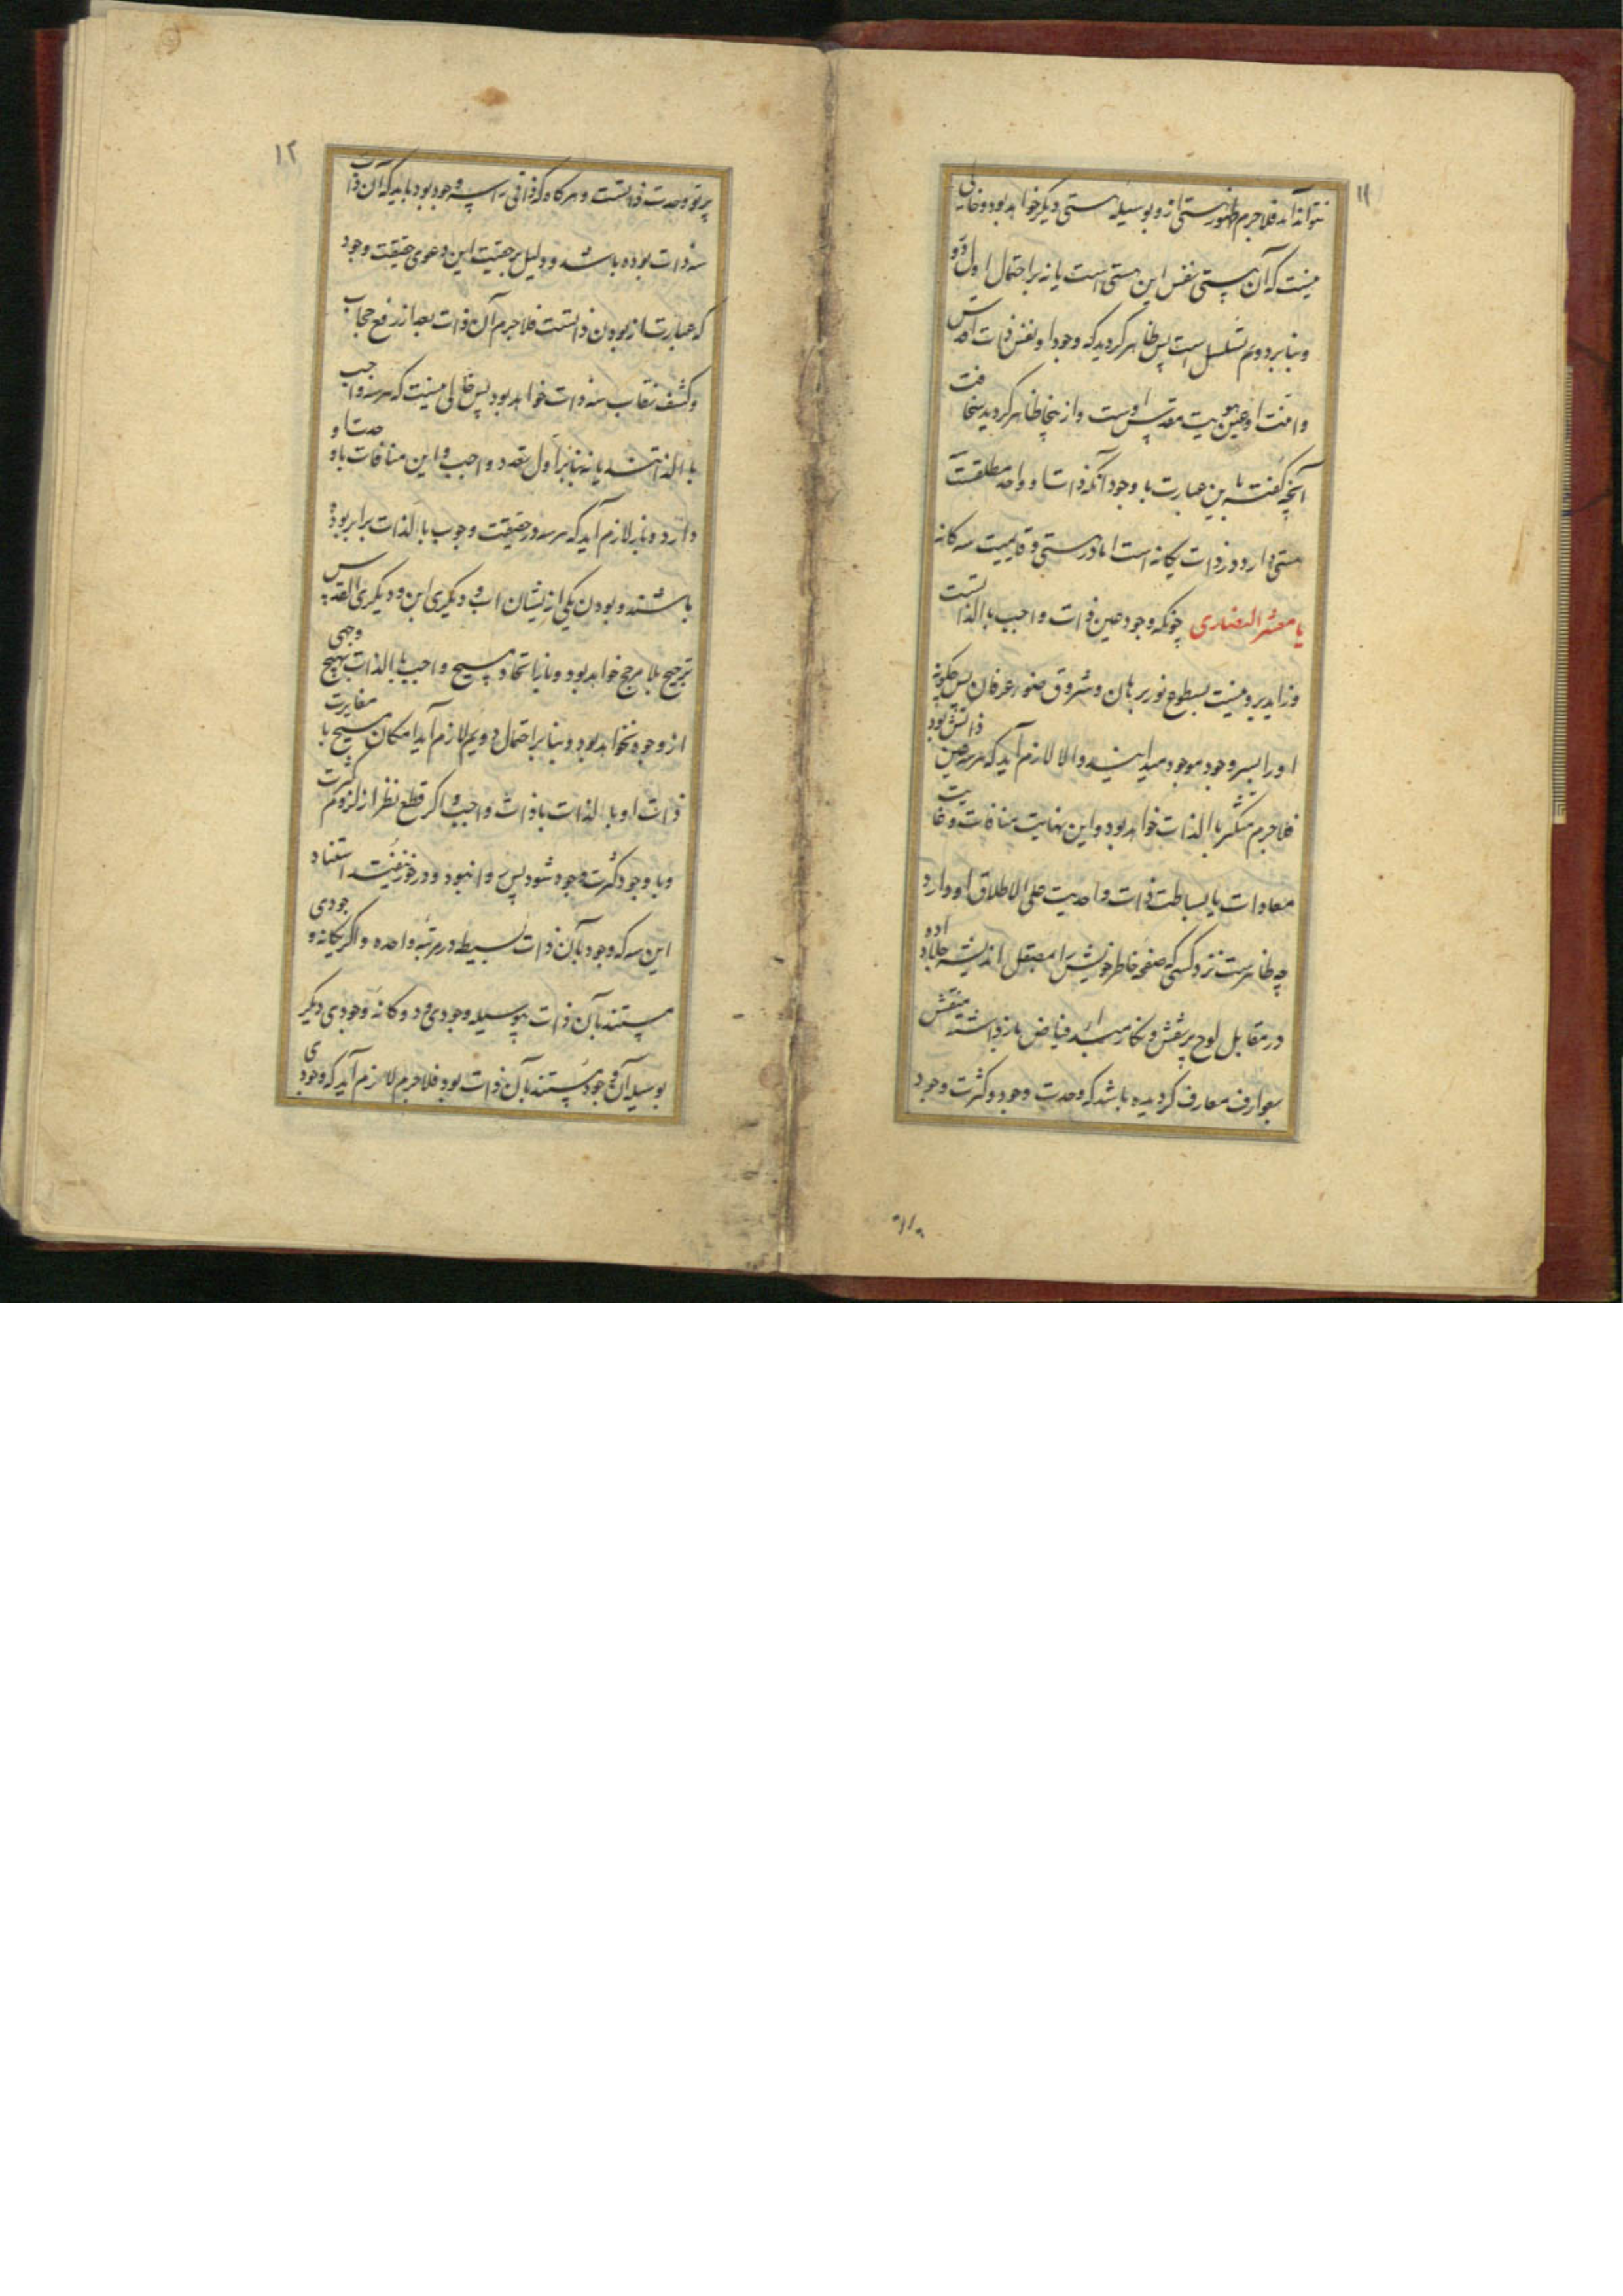 ۱۱
نتواند آمد فلاجرم ظهور هستی ازو بوسیله هستی دیگر خواهد بود و خالی
نیست که آن هستی نفس این هستی است یا نه بر احتمال اول دور
و بنا بر دویم تسلسل است پس ظاهر گردید که وجود او نفس ذات اقدس
و انیت او عین هویت مقدس اوست و از ینجا ظاهر گردید سخافت
آنچه گفته باین عبارت با وجود آنکه ذات او واحد مطلقست
هستی دارد و در ذات یگانه است اما در هستی و قایمیت سه گانه
یا معشر النصاری چونکه وجود عین ذات واجب بالذاتست
و زاید برو نیست بسطوع نور برهان و شروق ضوء عرفان پس چگونه
او را بسه وجود موجود میدانید والا لازم آید که هر سه عین ذاتش بود
فلاجرم متکثر بالذات خواهد بود و این نهایت منافات و غایت
معادات با بساطت ذات و احدیت علی الاطلاق او دارد
چه ظاهرست نزد کسی که صفحه خاطر خویش را بصیقل اندیشه جلا داده
در مقابل لوح پر نقش و نگار مبدء فیاض بازداشته منتقش
بعوارف معارف گردیده باشد که وحدت وجود و کثرت وجود
۱۲
پرتو وحدت ذاتست و هرگاه که ذاتی را سه وجود بود باید که آن ذات
سه ذات بوده باشد و دلیل بر حقیت این دعوی حقیقت وجود
که عبارت از بودن ذاتست فلاجرم آن ذات بعد از رفع حجاب
و کشف نقاب سه ذات خواهد بود پس خالی نیست که هر سه واجب
بالذاتند یا نه بنا بر اول تعدد واجب و این منافات با وحدت او
دارد و نیز لازم آید که هر سه در حقیقت وجوب بالذات برابر بوده
باشند و بودن یکی ازیشان اب و دیگری ابن و دیگری روح القدس
ترجیح بلا مرجح خواهد بود و نیز اتحاد مسیح و واجب بالذات بهیچ وجهی
از وجوه نخواهد بود و بنا بر احتمال دویم لازم آید امکان مسیح با مغایرت
ذات او بالذات با ذات واجب و اگر قطع نظر از لزوم کثرت
و با وجود کثرت وجود شود پس روا نبود و در خور نیست استناد
این سه که وجود بآن ذات بسیط در مرتبه واحده و اگر یگانه وجودی
مستند بآن ذات بوسیله وجودی و دوگانه وجودی دیگر
بوسیله آن وجود مستند بآن ذات بود فلاجرم لازم آید که وجودی